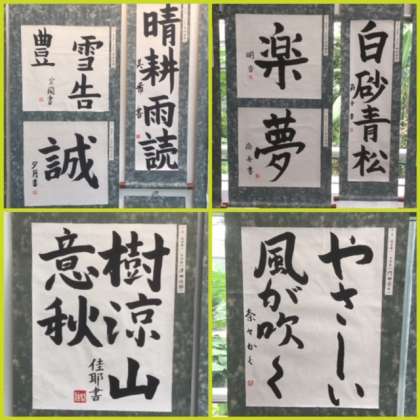 雪告
豊
誠
夕月書
晴耕雨読
楽
夢
白砂青松
樹涼山
意秋
佳耶書
やさしい
風が吹く
奈々かく